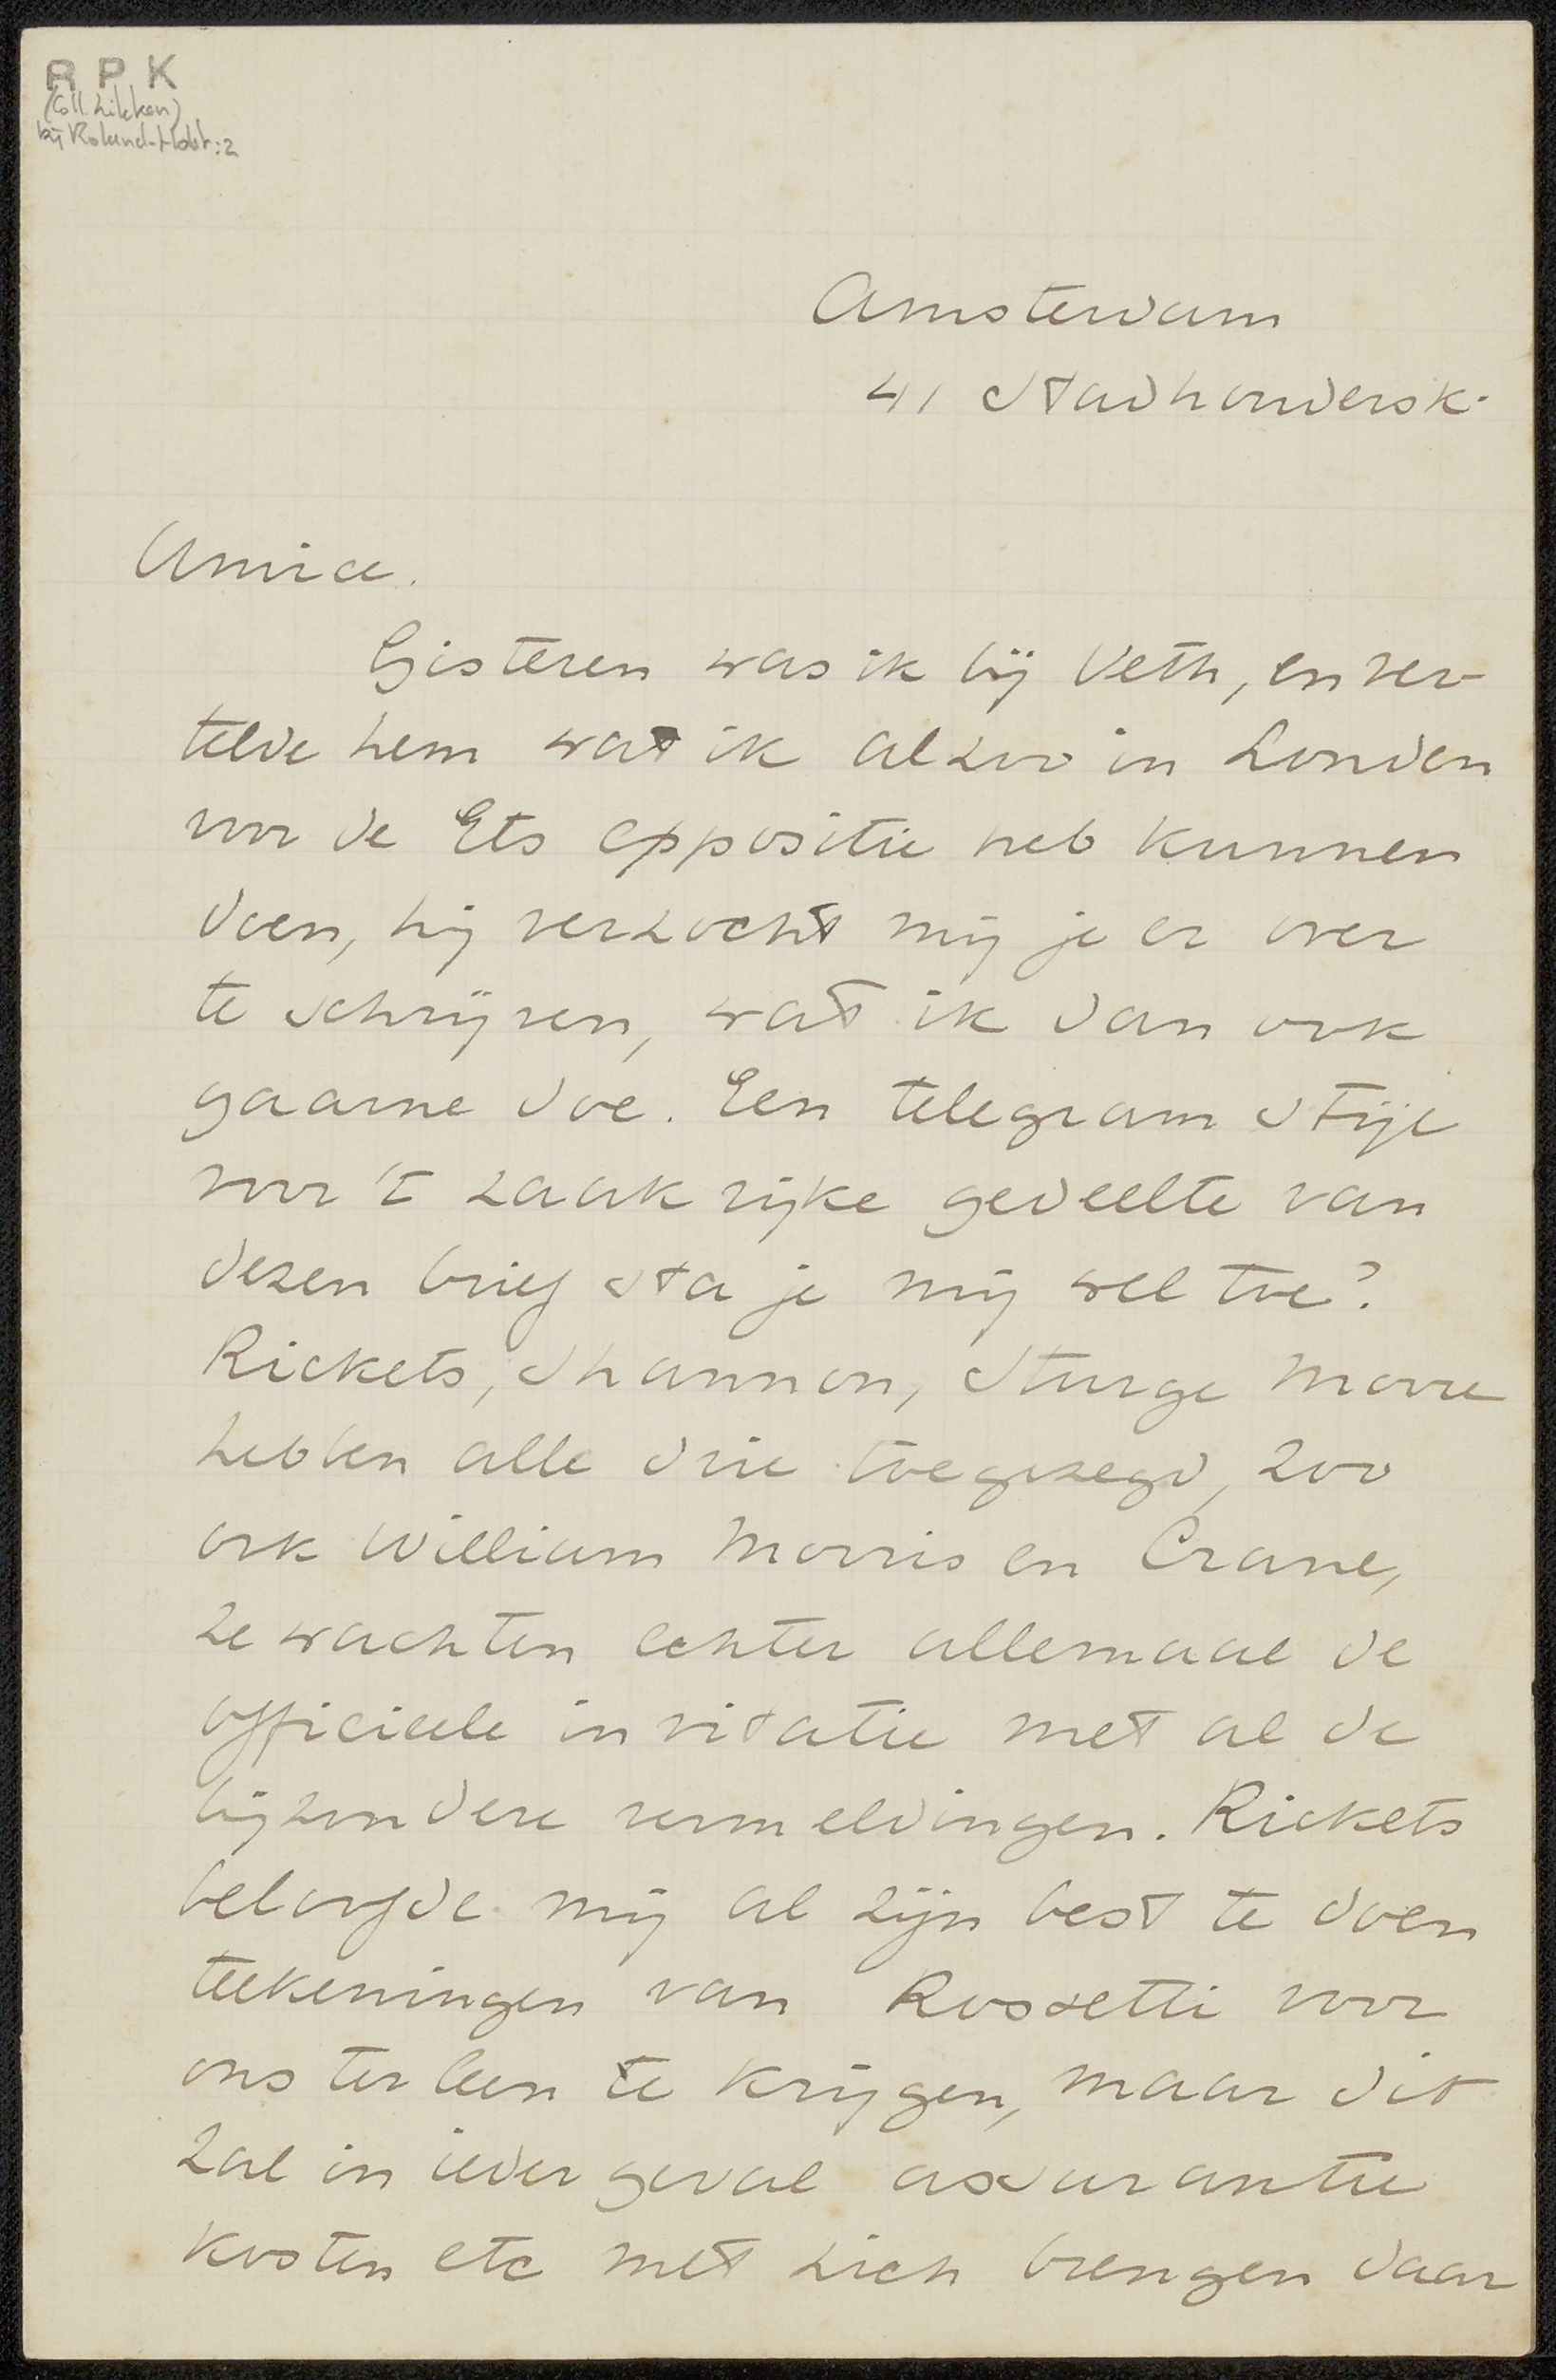 R P K
(Coll. Likken)
bij Roland-Holst: 2
Amsterdam
41 Stadhoudersk.
Amice.
Gisteren was ik bij Veth, en ver-
telde hem wat ik alzoo in Londen
voor de Ets exppositie heb kunnen
doen, hij verzocht mij je er over
te schrijven, wat ik dan ook
gaarne doe. Een telegram stijl
voor 't zaakrijke gedeelte van
dezen brief sta je mij wel toe?
Rickets, Shannon, Sturge Moore
hebben alle drie toegezegd, zoo
ook William Morris en Crane,
ze wachten echter allemaal de
officieele invitatie met al de
bijzondere vermeldingen. Rickets
beloofde mij al zijn best te doen
teekeningen van Rossetti voor
ons ter leen te krijgen, maar dit
zal in ieder geval assurantie
kosten etc met zich brengen daar